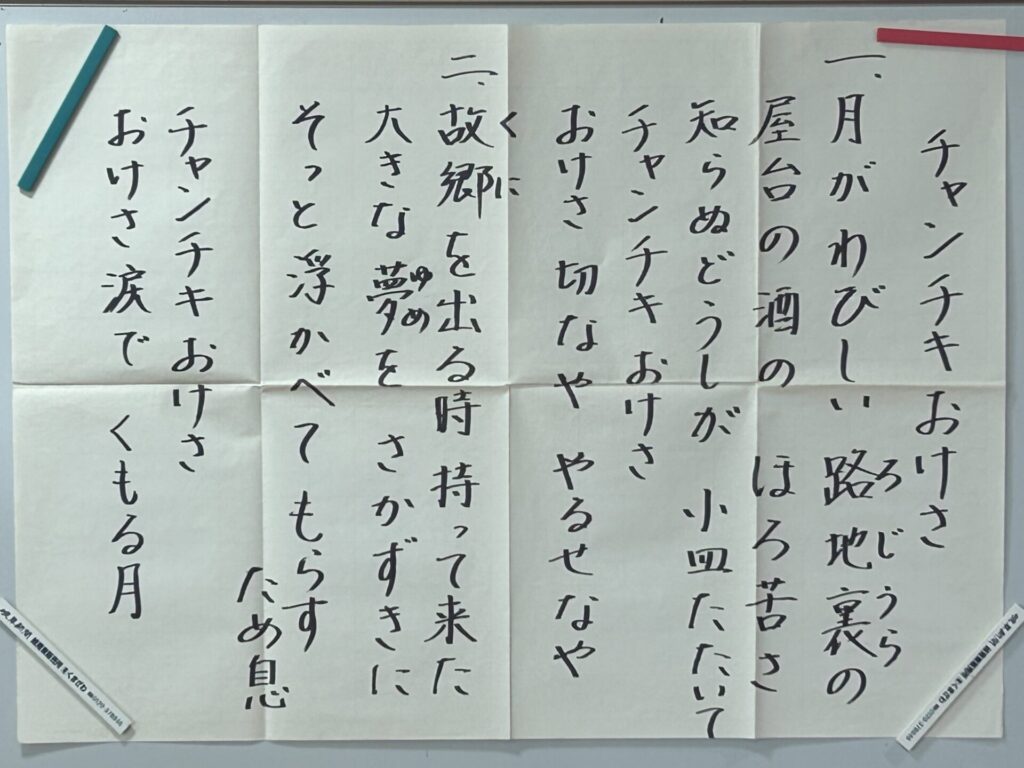 チャンチキおけさ
一、月がわびしい 路地裏の
ろじうら
屋台の酒の ほろ苦さ
知らぬどうしが 小皿たたいて
チャンチキおけさ
おけさ 切なや やるせなや
二、故郷を出る時 持って来た
くに
大きな夢を さかずきに
ゆめ
そっと浮かべて もらす
ため息
チャンチキおけさ
おけさ涙で くもる月